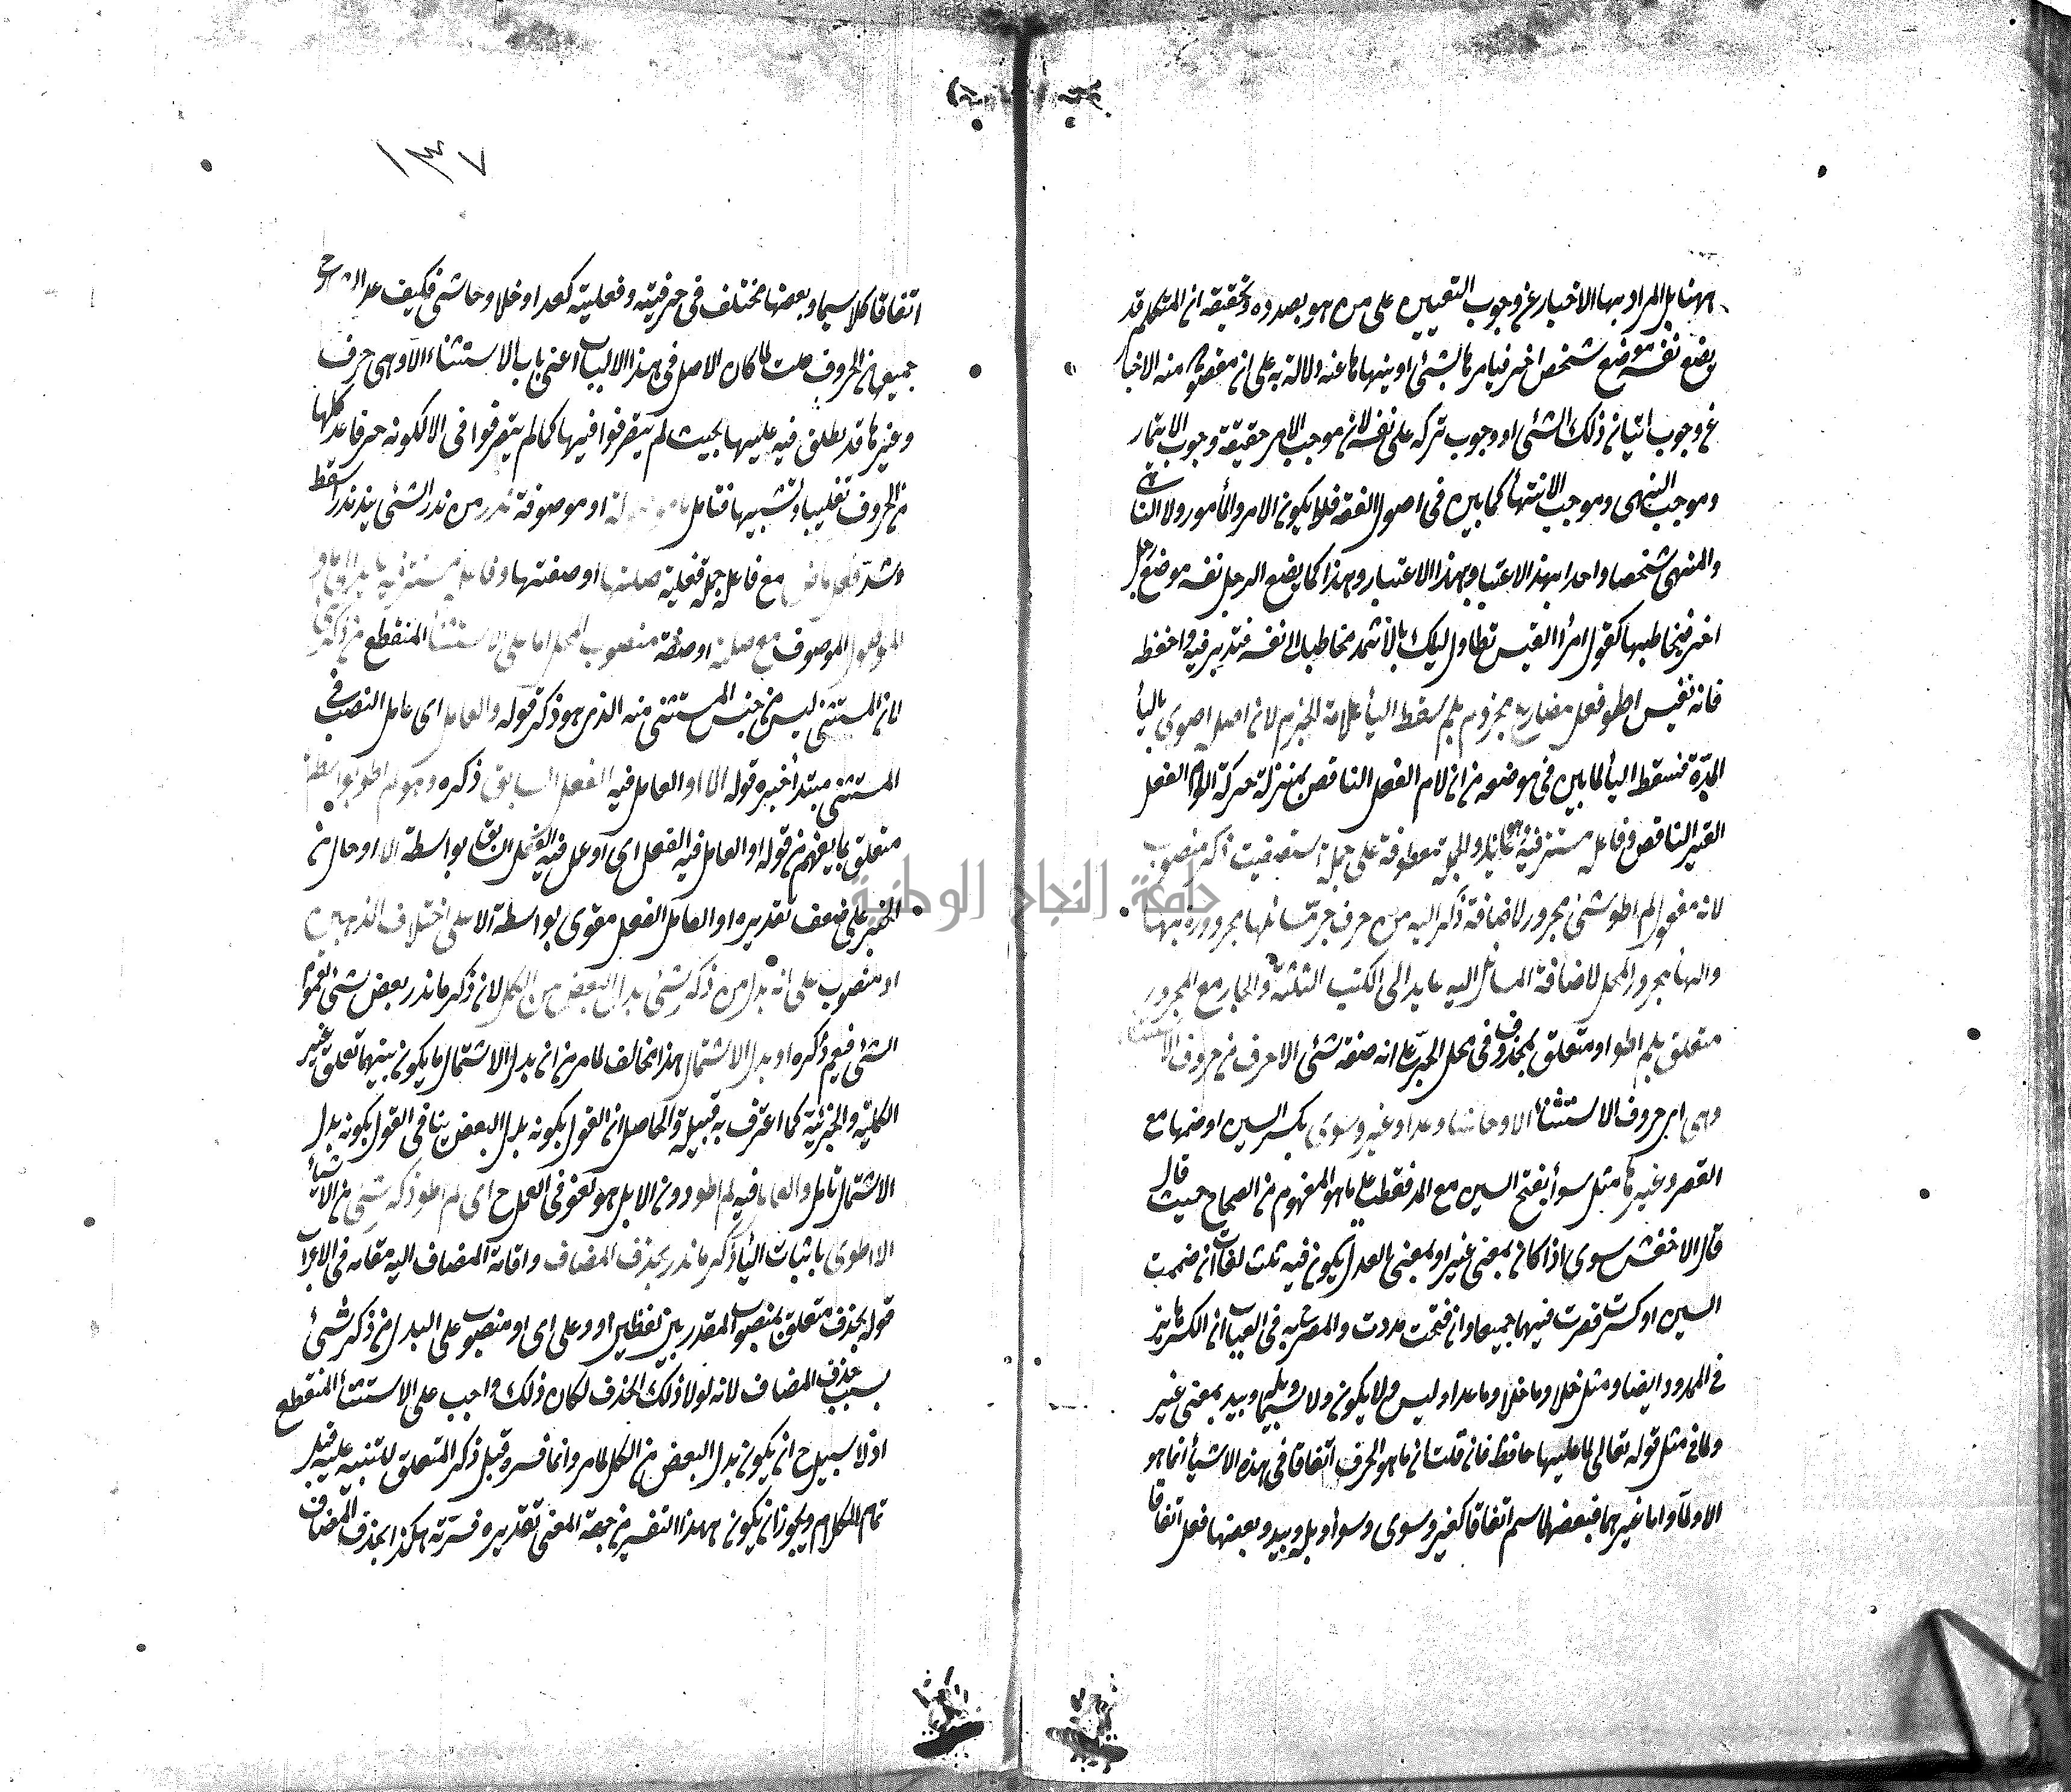 ههنا بل المراد بها الاخبار عن وجوب التعيين على من هو بصدده وتحقيقه ان المتكلم قد
يضع نفسه موضع شخص اخر فيامرها بشئ او ينهاها عنه دلالة به على ان مقصوده منه الاخبار
عن وجوب اتيان ذلك الشئ او وجوب تركه على نفسه لان موجب الامر حقيقة وجوب الايتمار
وموجب النهى وموجب الانتهاء كما بين في اصول الفقه فلا يكون الامر والمأمور ولا الناهى
والمنهى شخصا واحدا بهذا الاعتبار وبهذا الاعتبار وهذا كما يضع الرجل نفسه موضع رجل
اخر فيخاطبها كقول امرأ القيس تطاول ليلك بالاثمد مخاطبا الى نفسه فتدبر فيه واحفظ
فانه نفيس اطو فعل مضارع مجزوم بلم سقط اليأ علامة للجزم لان اصل اطوى باليأ
المدّة فسقط اليأ لما بين في موضعه من ان لام الفعل الناقص بمنزلة حركة اللام الفعل
الغير الناقص وفاعله مستتر فيه وهو انا والجملة معطوفة على جملة استصفيت ذكر منصوب
لانه مفعول لم اطو شئ مجرور لاضافة ذكر اليه من حرف جر مسائلها مجرورة بها
والهأ مجرور المحل لاضافة المسائل اليه عايد الى الكتب الثلثة والجار مع المجرور
متعلق بلم اطو او متعلق بمحذوف في محل الجر على انه صفة شئ الا حرف من حروف الاستثنأ
وهى اى حروف الاستثنأ الا وحاشا وعدا وغير وسوى بكسر السين او ضمها مع
القصر وغيرها مثل سوأ بفتح السين مع المد فقط على ما هو المفهوم من الصحاح حيث قال
قال الاخفش سوى اذا كان بمعنى غير او بمعنى العدل يكون فيه ثلث لغات ان ضممت
السين او كسرت قصرت فيهما جميعا وان فتحت مددت والمصرح به في العباب ان الكسر جائز
في الممدود ايضا ومثل خلا وما خلا وما عدا وليس ولا يكون ولا سيما وبله وبيد بمعنى غير
ولما في مثل قوله تعالى لما عليها حافظ فان قلت ان ما هو الحرف اتفاقا في هذه الاشيأ انما هو
الا ولما واما غيرهما فبعضها اسم اتفاقا كغير وسوى وسوأ وبله وبيد وبعضها فعل اتفاقا
١٣٧
اتفاقا كلا سيما وبعضها مختلف في حرفيته وفعليته كعدا وخلا وحاشى فكيف عد الشارح
جميعها من الحروف قلت لما كان الاصل في هذا الالباب اعنى باب الاستثناء الا وهى حرف
وغيرها قد يطلق فيه عليها بحيث لم يتصرفوا فيها كما لم يتصرفوا في الا لكونه حرفا عد كلها
من الحروف تغليبا وتشبيها فتامل ما موصولة او موصوفة ندر من ندر الشئ يندر ندرا سقط
وشذ فعل ماض مع فاعله جملة فعلية صلتها او صفتها وفاعله مستتر فيه عايد الى ما و
الموصول الموصوف مع صلته او صفته منصوب المحل اما على الاستثنأ المنقطع من ذكر
لان المستثنى ليس من جنس المستثنى منه الذى هو ذكر قوله والعامل اى عامل النصب في
المستثنى مبتدأ خبره قوله الا او العامل فيه الفعل السابق ذكره وهو لم اطو بواسطة
متعلق بما يفهم من قوله او العامل فيه الفعل اى او عمل فيه الفعل السابق بواسطة الا او حال من
الخبر على ضعف تقديره او العامل الفعل مقوى بواسطة الا على اختلاف المذهبين
او منصوب على انه بدل من ذكر شئ بدل البعض من الكل لان ذكر ما ندر بعض شئ لعموم
الشئ فيعم ذكره او بدل الاشتمال هذا مخالف لما مر من ان بدل الاشتمال ما يكون بينهما تعلق بغير
الكلية والجزئية كما اعترف به قبيله والحاصل ان القول بكونه بدل البعض ينافى القول بكونه بدل
الاشتمال تامل والعامل فيه لم اطو دون الا بل هو لغو في العمل ح اى لم اطو ذكر شئ من الاشيأ
الا اطوى باثبات اليأ ذكر ما ندر بحذف المضاف واقامة المضاف اليه مقامه في الاعراب
قوله بحذف متعلق بمنصوب المقدر بين لفظين او وعلى اى او منصوب على البدل من ذكر شئ
بسبب حذف المضاف لانه لولا ذلك الحذف لكان ذلك واجب على الاستثنأ المنقطع
اذ لا سبيل ح ان يكون بدل البعض من الكل لما مر وانما فسره قبل ذكر المتعلق للتنبيه عليه قبل
تمام الكلام ويجوز ان يكون هذا التفسير من جهة المعنى تقديره فسرته هكذا بحذف المضاف
جامعة النجاح الوطنية